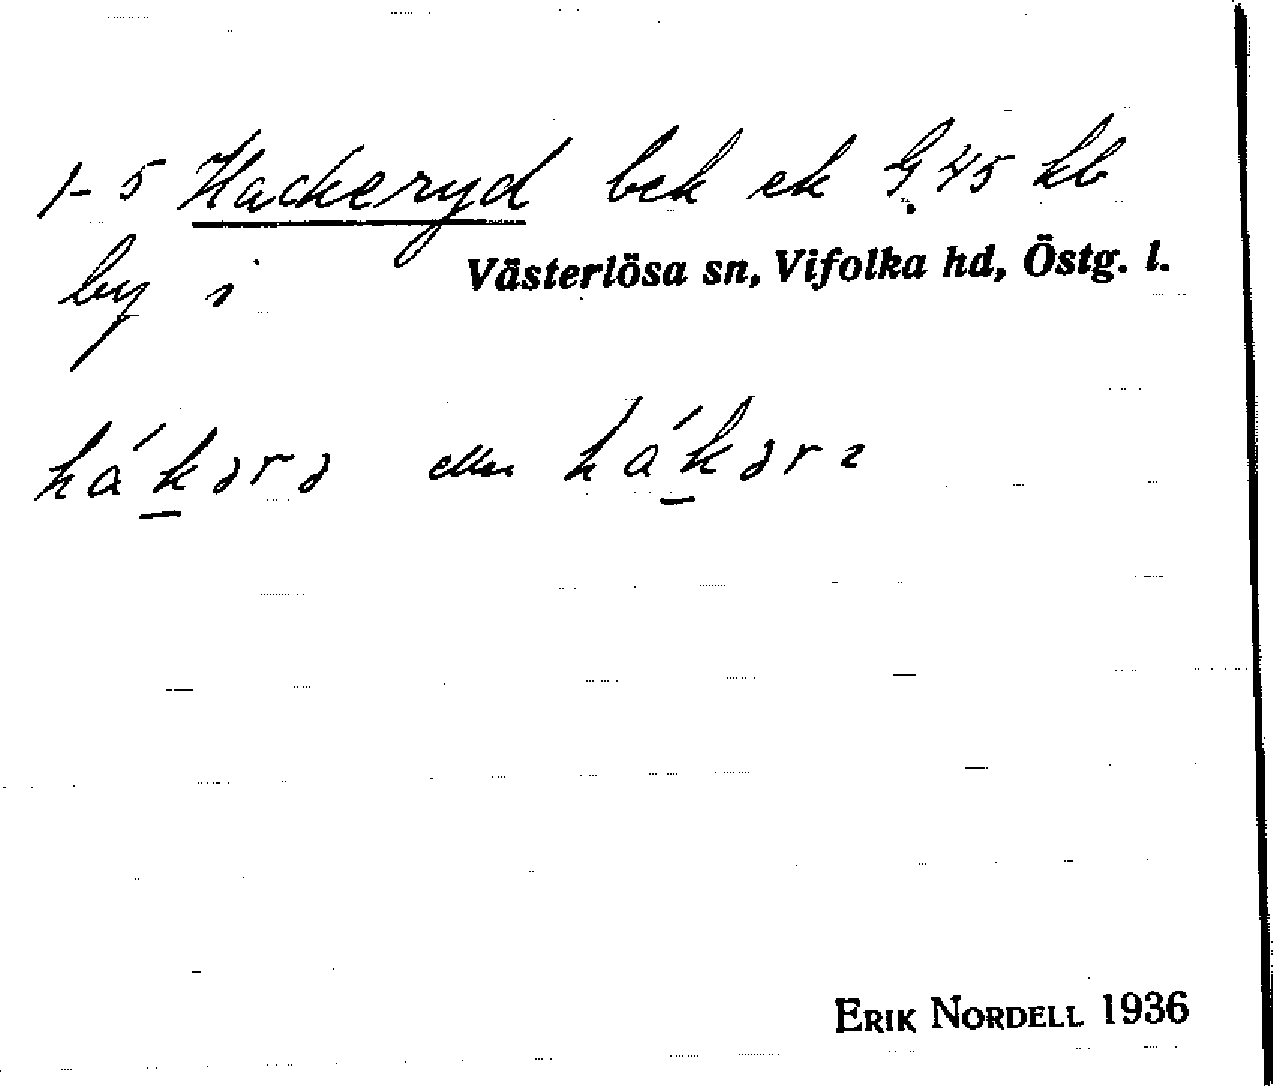 1-5 Hackeryd bek ek G. 45 kb
by i Västerlösa sn, Vifolka hd, Östg. l.
há<u>k</u>ərə eller há<u>k</u>ər
ERIK NORDELL 1936